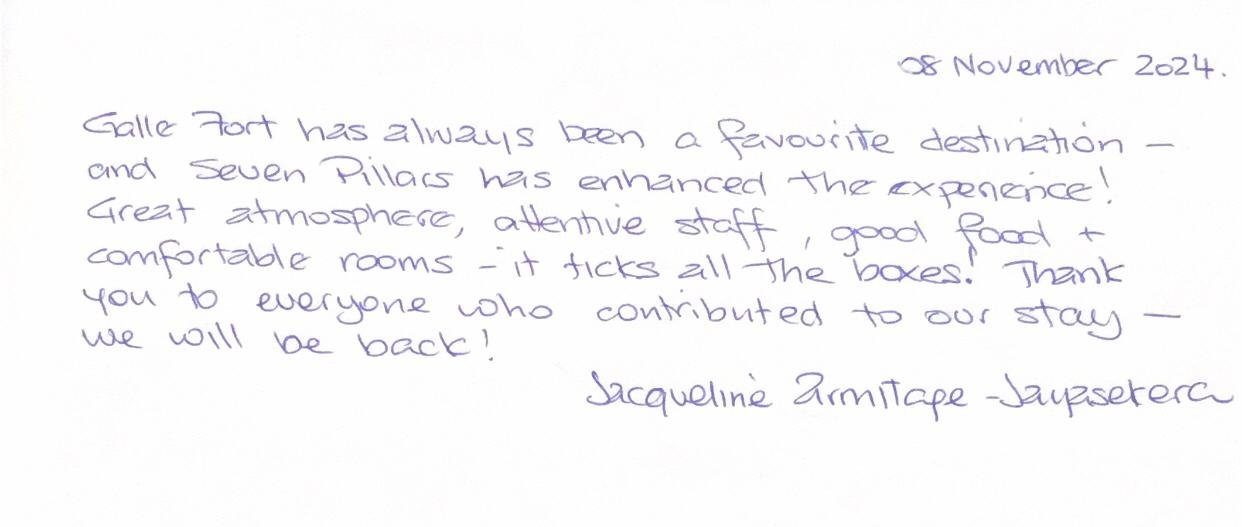 08 November 2024.
Galle Fort has always been a favourite destination –
and Seven Pillars has enhanced the experience!
Great atmosphere, attentive staff, good food +
comfortable rooms – it ticks all the boxes! Thank
you to everyone who contributed to our stay –
we will be back!
Jacqueline Armitage -